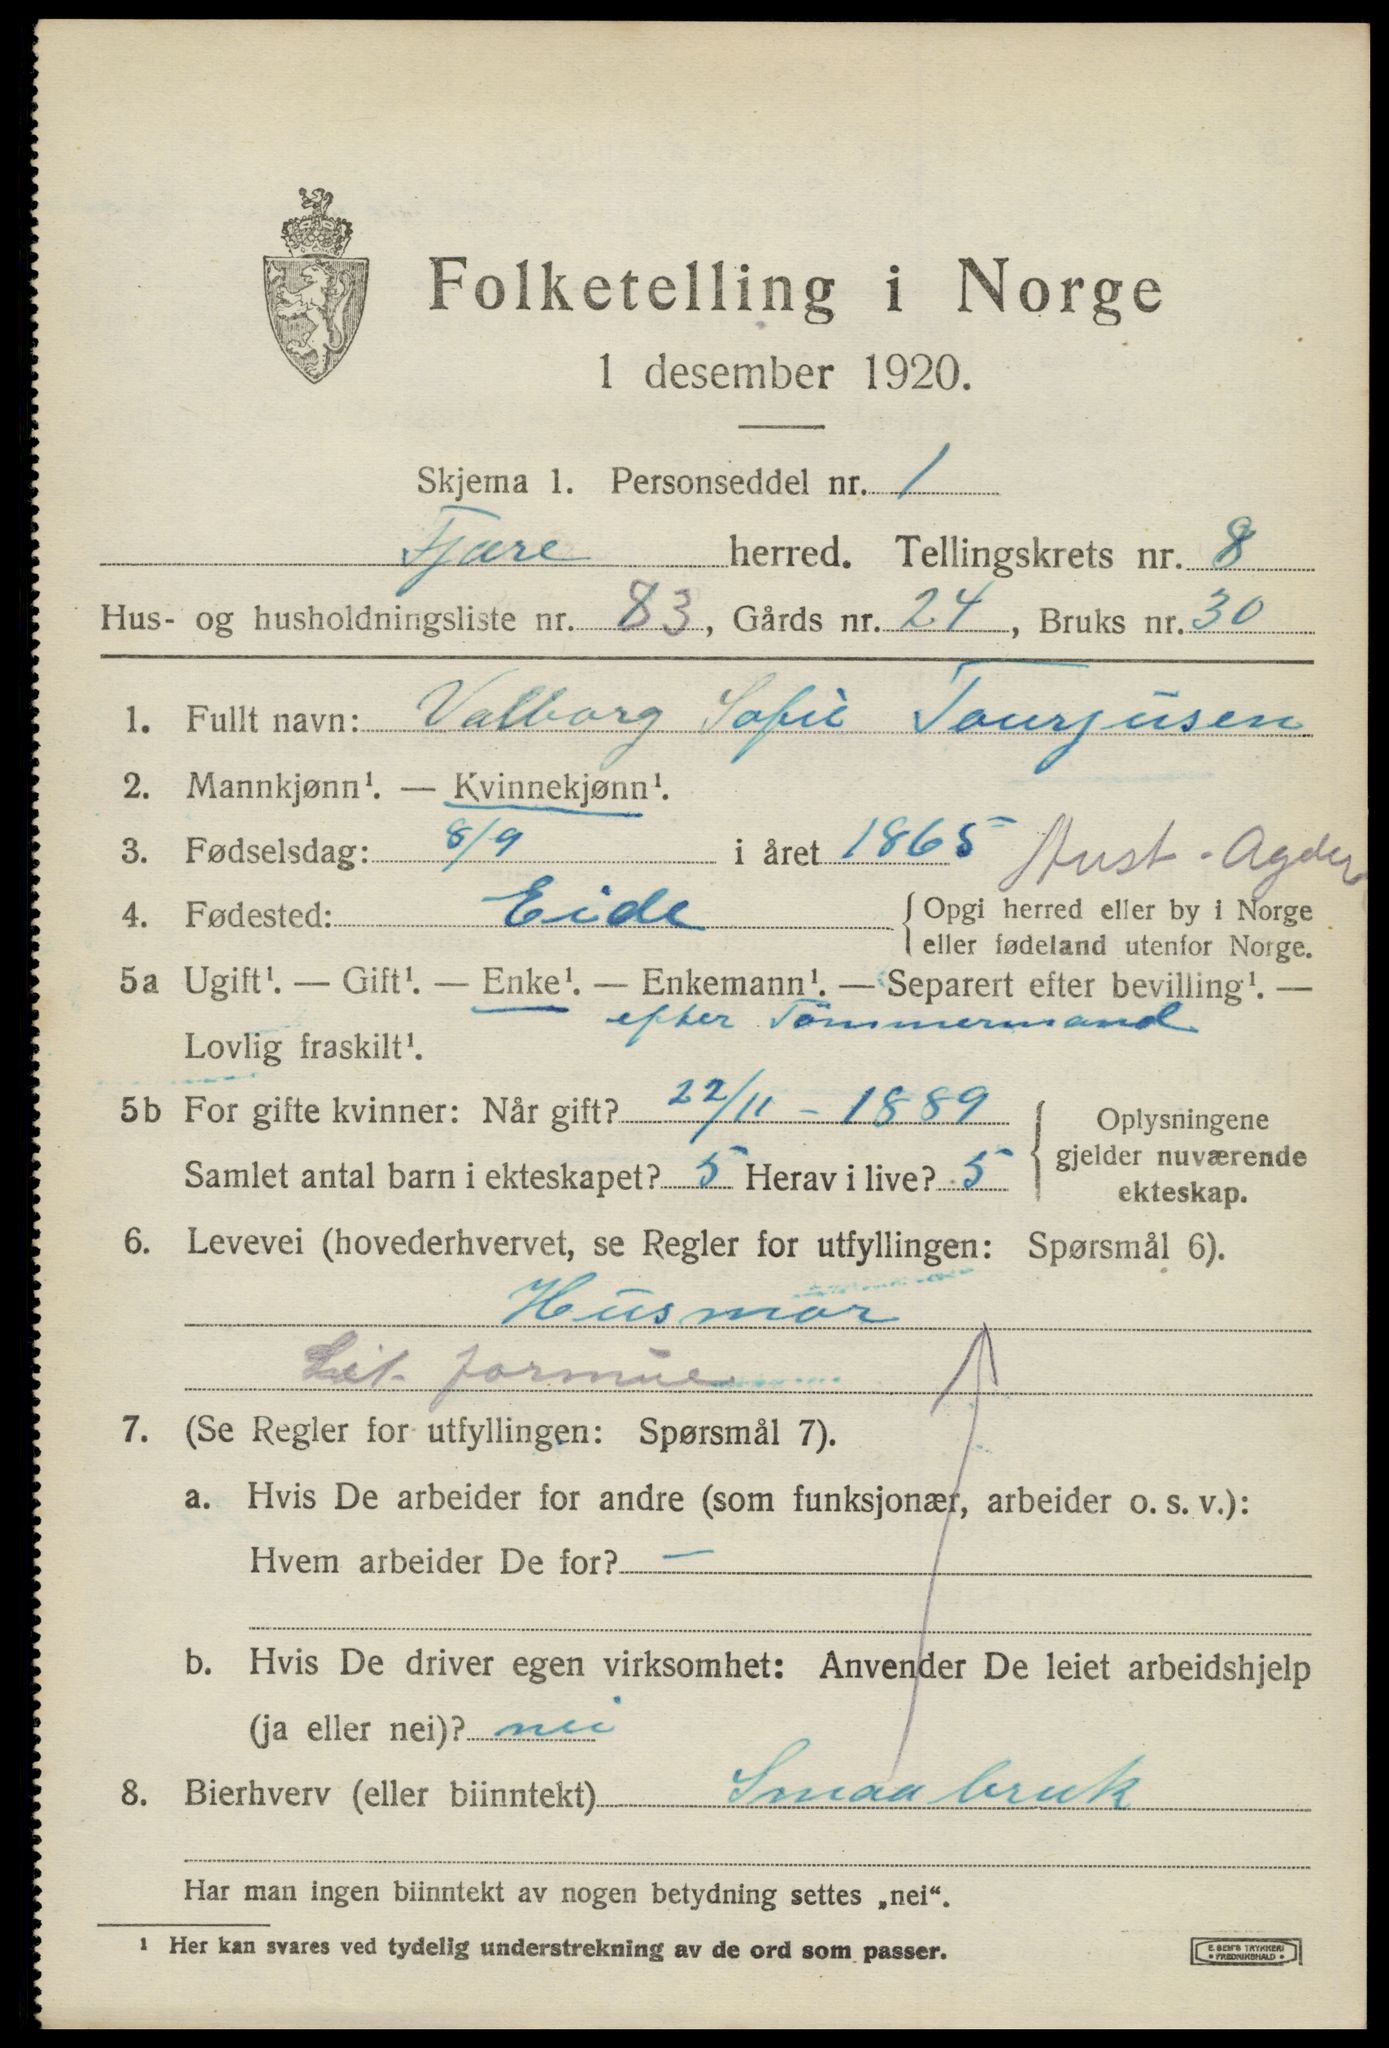 Folketelling i Norge
1 desember 1920.
Skjema 1. Personseddel nr. 1
Fjære herred. Tellingskrets nr. 8
Hus- og husholdningsliste nr. 83, Gårds nr. 24, Bruks nr. 30
1. Fullt navn: Valborg Sofie Taurjusen
2. Mannkjønn¹. — Kvinnekjønn¹.
3. Fødselsdag: 8/9 i året 1865 Aust-Agder
4. Fødested: Eide { Opgi herred eller by i Norge
eller fødeland utenfor Norge.
5a Ugift¹. — Gift¹. — Enke¹. — Enkemann¹. — Separert efter bevilling¹. —
efter Tömmermand
Lovlig fraskilt¹.
5b For gifte kvinner: Når gift? 22/11 - 1889
Samlet antal barn i ekteskapet? 5 Herav i live? 5
{ Oplysningene
gjelder nuværende
ekteskap.
6. Levevei (hovederhvervet, se Regler for utfyllingen: Spørsmål 6).
Husmor
Lit formue
7. (Se Regler for utfyllingen: Spørsmål 7).
a. Hvis De arbeider for andre (som funksjonær, arbeider o. s. v.):
Hvem arbeider De for? —
b. Hvis De driver egen virksomhet: Anvender De leiet arbeidshjelp
(ja eller nei)? nei
8. Bierhverv (eller biinntekt) Smaabruk
Har man ingen biinntekt av nogen betydning settes „nei“.
¹ Her kan svares ved tydelig understrekning av de ord som passer.
E. SEM'S TRYKKERI
• FREDRIKSHALD •